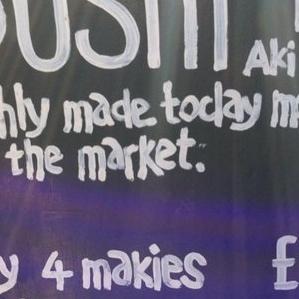 OUSHI
Aki
hly made today m
the market.
y 4 makies £